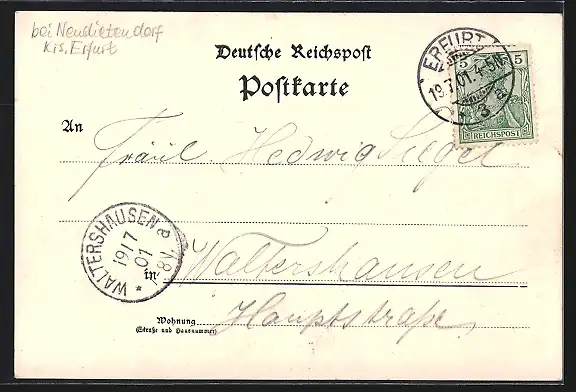 bei Neudietendorf
Krs. Erfurt
Deutsche Reichspost
Postkarte
ERFURT
19.7.01.4-5N.
* 3 a
5 5
REICHSPOST
An
Fräul. Hedwig Siegel
WALTERSHAUSEN a
19/7
01
8V.
*
in Waltershausen
Hauptstraße
Wohnung
(Straße und Hausnummer)